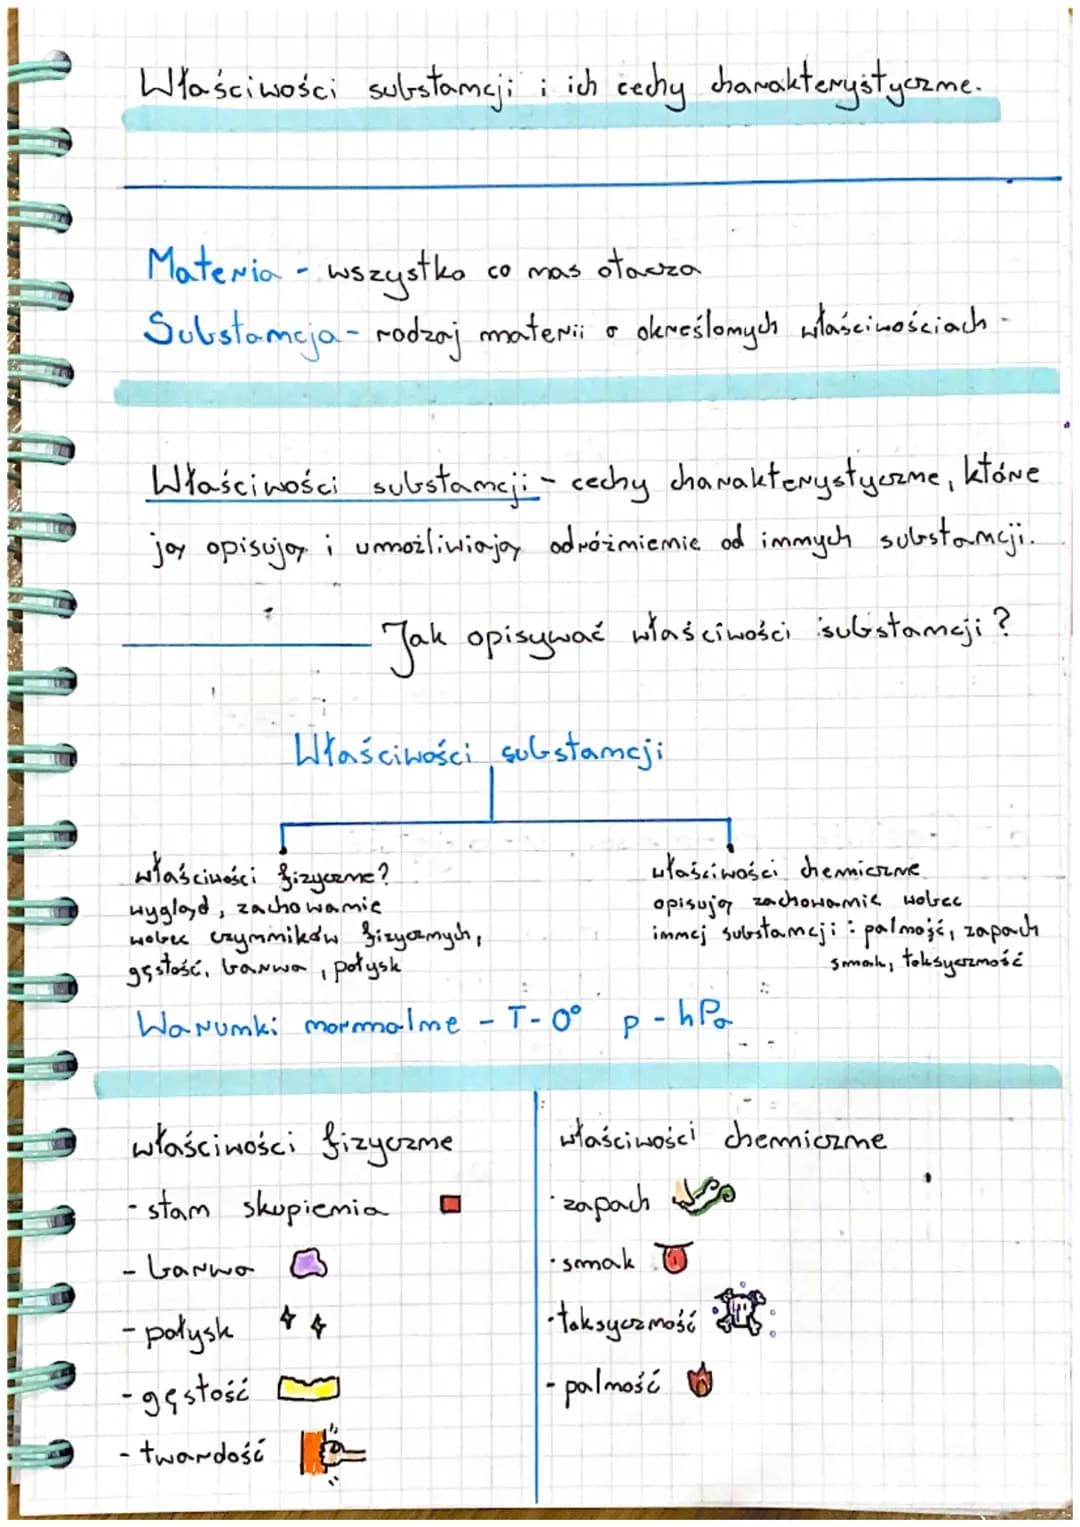 Właściwości substancji i ich cechy charakterystyczne.
Materia - wszystko co nas otacza
Substancja - rodzaj materii o określonych właściwościach -
Właściwości substancji - cechy charakterystyczne, które
ją opisują i umożliwiają odróżnienie od innych substancji.
Jak opisywać właściwości substancji?
Właściwości substancji
właściwości fizyczne?
wygląd, zachowanie
wobec czynników fizycznych,
gęstość, barwa, połysk
właściwości chemiczne
opisują zachowanie wobec
innej substancji : palność, zapach
smak, toksyczność
Warunki normalne - T - 0° p - hPa
właściwości fizyczne
- stan skupienia
- barwa
- połysk
- gęstość
- twardość
właściwości chemiczne
· zapach
· smak
· toksyczność
- palność